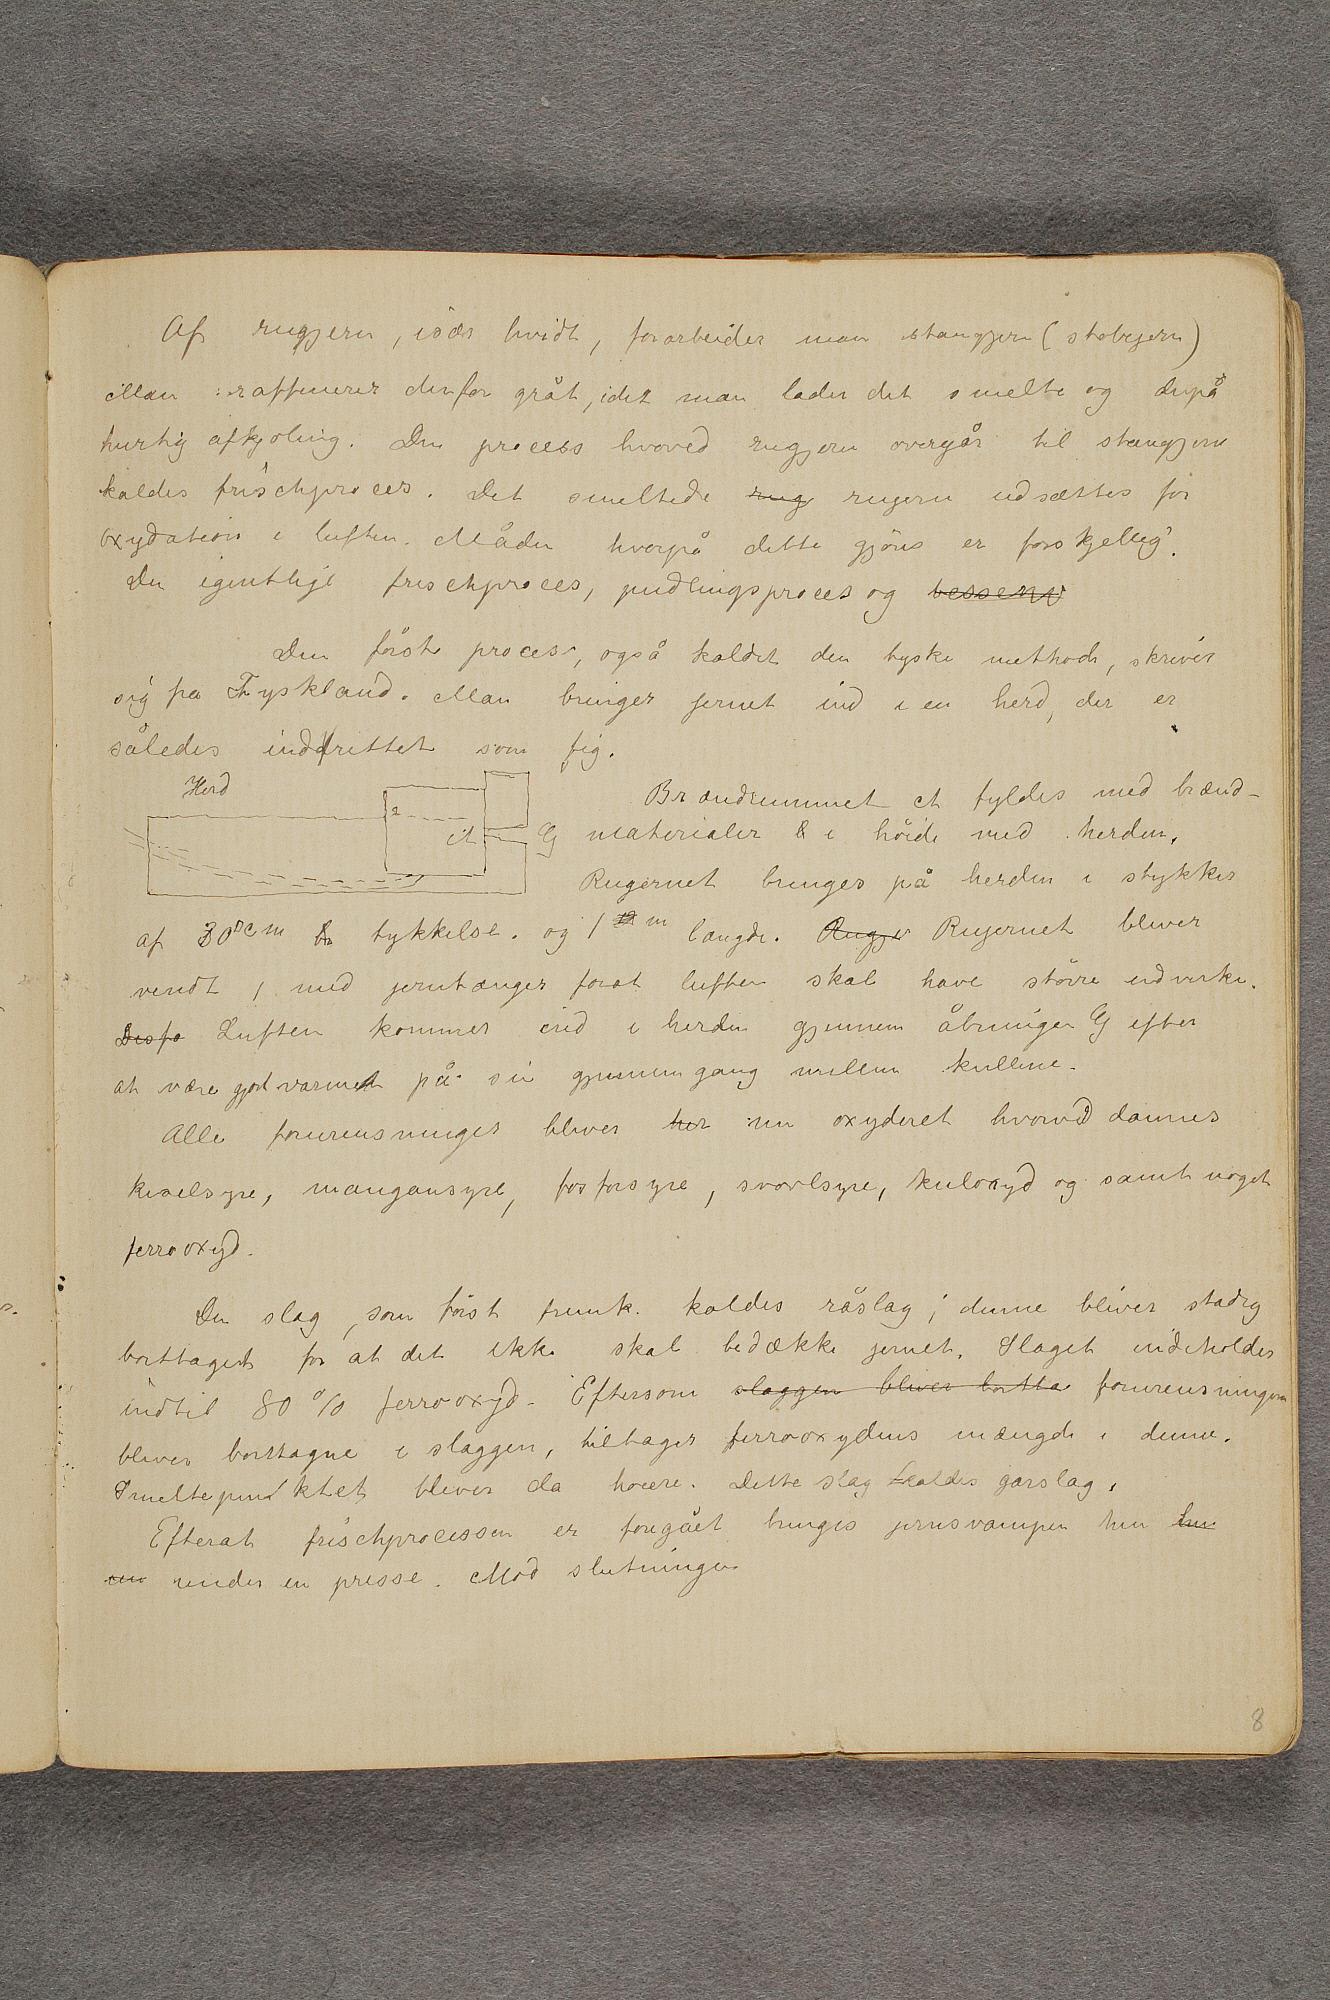 Af rugjern, især hvidt, forarbeider man stangjern (stobejern)
Man raffinerer derfor gråt, idet man lader det smelte og derpå
hurtig afkjoling. Den process hvoved rugjern overgår til stangjern
kaldes frischproces. Det smeltede rug rujern udsættes for
oxydation i luften. Måden hvorpå dette gjöres er forskjellig.
Den igentlige frischproces, pudlingsproces og bessem
Den förste proces, også kaldet den tyske methode, skriver
sig fra Tyskland. Man bringer jernet ind i en herd, der er
således indrettet som fig.
Herd
a
A
G
Brændrummet A fyldes med brænd-
materialer i höide med herden.
Rujernet bringes på herden i stykker
af 30 cm tykkelse. og 1 m længde. Rugje Rujernet bliver
vendt, med jerntænger forat luften skal have större udvirke.
Desfo Luften kommer ind i herden gjennem åbningen G efter
at være godt varmet på sin gjennemgang mellem kullene.
Alle forurensninger bliver her nu oxyderet hvorved dannes
kiselsyre, mangansyre, fosforsyre, svovlsyre, kuloxyd og samt noget
ferrooxyd.
Den slag, som först fremk. kaldes råslag; denne bliver stadig
borttaget for at det ikke skal bedække jernet. Slaget indeholder
indtil 80 % ferrooxyd. Eftersom slaggen bliver bortta forurensningerne
bliver borttagne i slaggen, tiltager ferrooxydens mængde i denne.
Smeltepunktet bliver da hoiere. Dette slag kaldes garslag.
Efterat frischprocessen er foregået bringes jernsvampen hen hen
under en presse. Mod slutningen
8